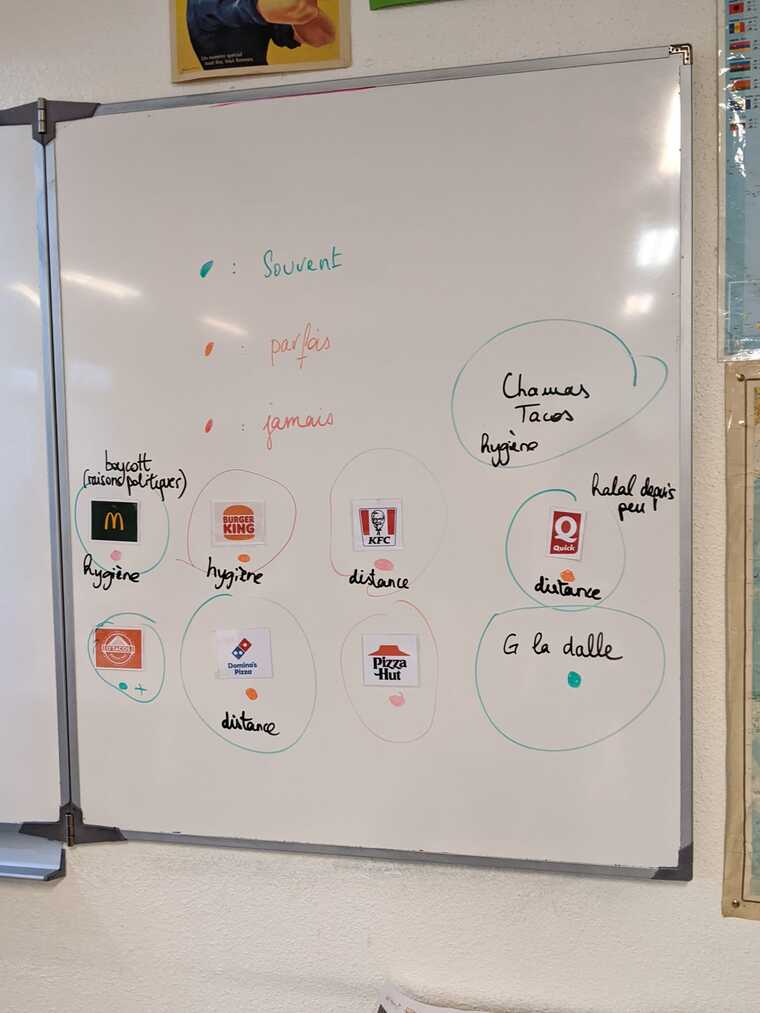 : Souvent
: parfais
: jamais
Chamas
Tacos
hygiène
boycott
(raisons politiques)
M
hygiène
BURGER
KING
hygiène
KFC
distance
halal depuis
peu
Q
Quick
distance
O'TACOS
+
Domino's
Pizza
distance
Pizza
Hut
G la dalle